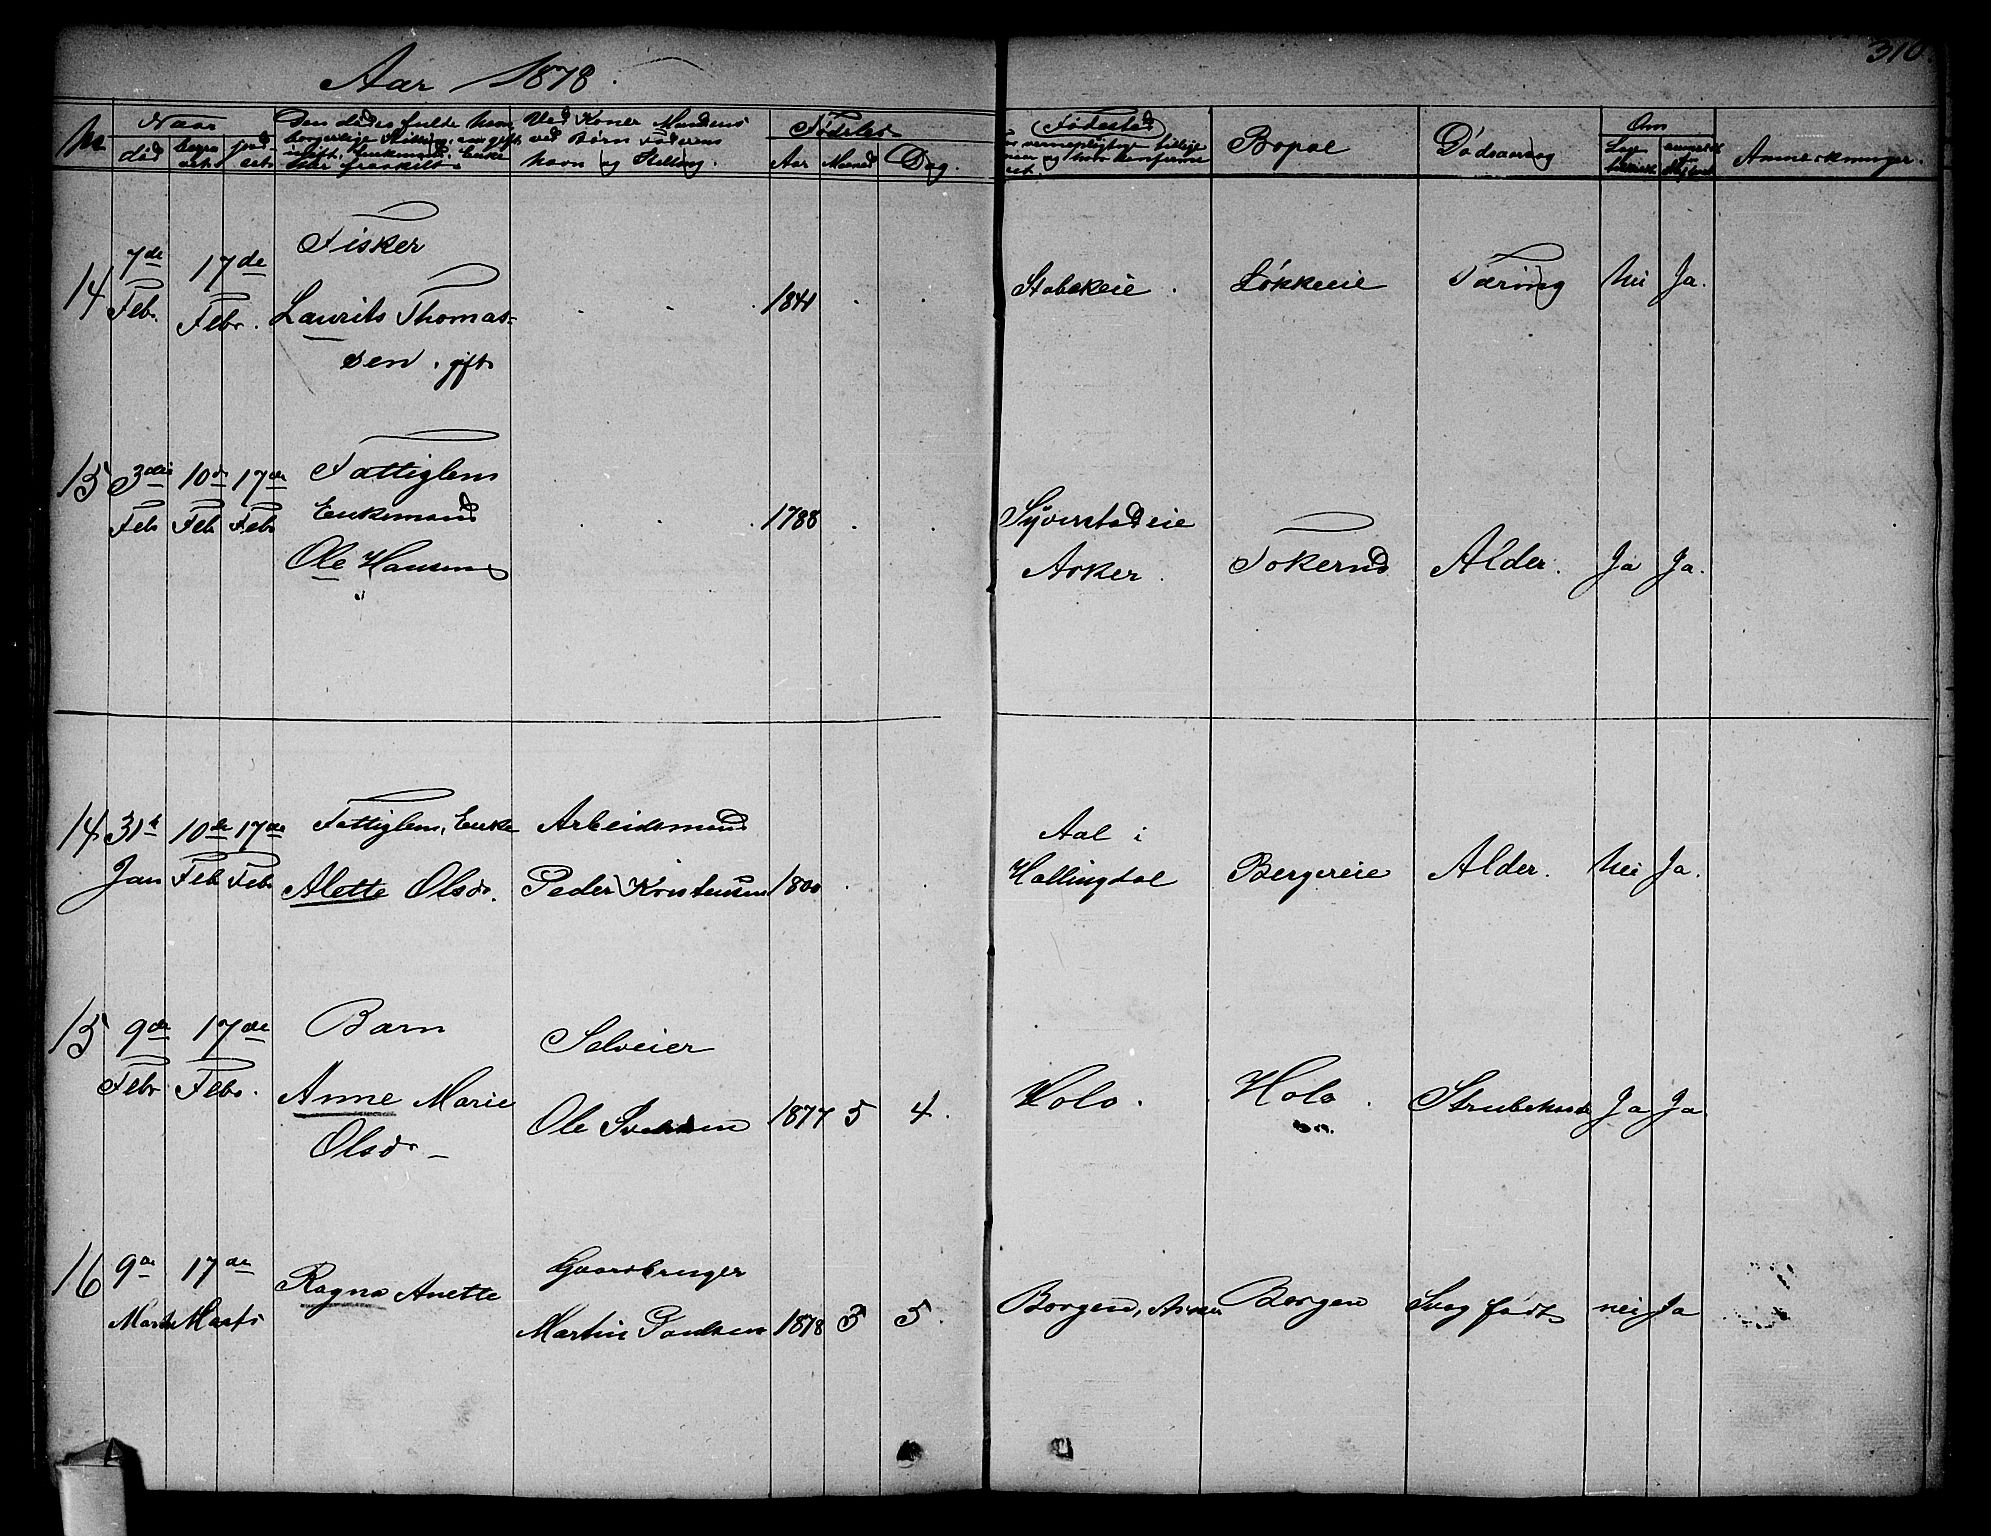 310.
Aar 1878.
No
Naar
død
begra
vet
jord
vet
Den dødes fulde Navn
borgerlig Stilling, om gift
ugift, Enkemand, Enke
eller fraskilt.
Ved Koner Mandens
ved Børn Faderens
Navn og Stilling.
Fødsels
Aar Maaned Dag.
Fødested
Bopæl
Dødsaarsag
Om
Anmærkninger.
14
7de
Febr.
17de
Febr.
Fisker
Laurits Thomas-
sen, gift
1841
Stabekeie
Løkkeeie
Tæring
Nei
Ja.
15
3die
Feb
10de
Feb
17de
Feb
Fattiglem
Enkemand
Ole Hansen
1788
Syverstadeie
Asker.
Tokerud
Alder.
Ja
Ja.
14
31te
Jan
10de
Feb
17de
Feb
Fattiglem, Enke
Alette Olsdr.
Arbeidsmand
Peder Kristensen
1800
Aal i
Hallingdal
Bergereie
Alder.
Nei
Ja.
15
9de
Febr
17de
Febr.
Barn
Anne Marie
Olsdr
Selveier
Ole Svendsen
1877
5
4.
Holo.
Holo.
Strubehoste
Ja
Ja
16
9de
Marts
17de
Marts
Ragna Anette
Gaardbruger
Martin Paulsen
1878
3
5.
Borgen, Asker
Borgen
Svag født
nei
Ja